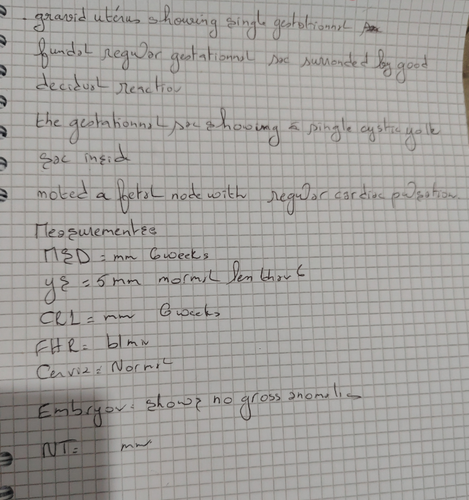 . gravid uterus showing single gestationnal
fundal regular gestationnal sac surrounded by good
decidual reaction
the gestationnal sac showing a single cystic yolk
sac insid
noted a fetal node with regular cardiac pulsation
Measurementes
MSD = mm 6 weeks
YS = 5 mm normal
CRL = mm 6 weeks
FHR = b/mn
Cervix = Normal
Embryon: shows no gross anomalies
NT = mm